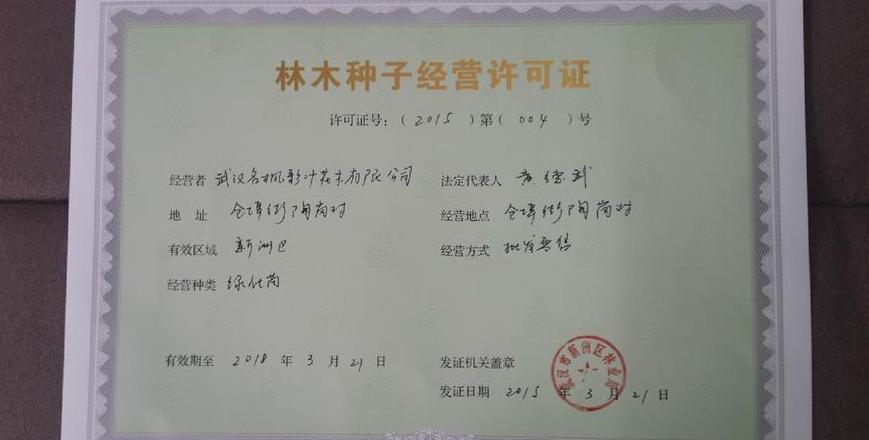 林木种子经营许可证
许可证号:(2015)第(004)号
经营者 武汉名枫彩叶花木有限公司 法定代表人 黄德武
地址 仓埠街陶岗村 经营地点 仓埠街陶岗村
有效区域 新洲区 经营方式 批发零售
经营种类 绿化苗
有效期至 2018 年 3 月 21 日 发证机关盖章
武汉市新洲区林业局
发证日期 2015 年 3 月 21 日